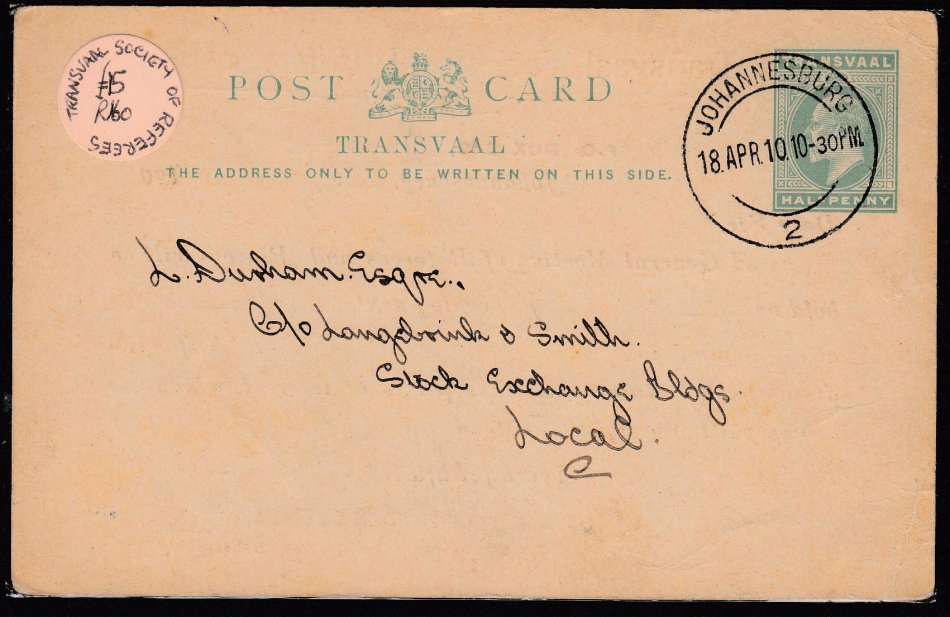 TRANSVAAL SOCIETY OF REFEREES
£15
R160
POST CARD
TRANSVAAL
THE ADDRESS ONLY TO BE WRITTEN ON THIS SIDE.
TRANSVAAL
HALFPENNY
JOHANNESBURG
18.APR.10.10-30PM.
2
L. Durham Esqre.,
C/o Langebrink & Smith.
Stock Exchange Bldgs.
Local.